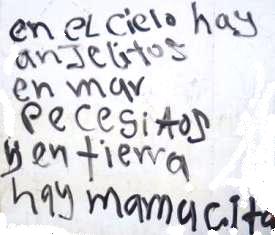 en el cielo hay
anjelitos
en mar
Pecesitos
y en tierra
hay mamacita